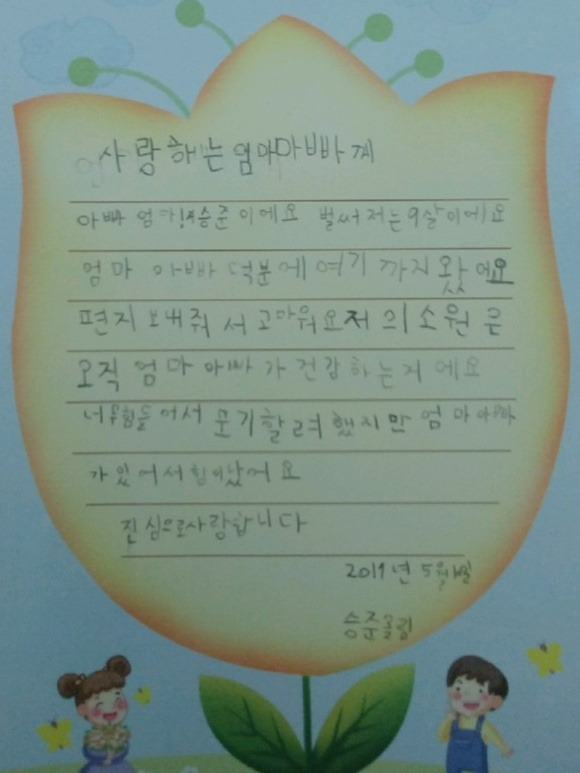 사랑하는 엄마아빠께
아빠 엄마! 승준이에요 벌써 저는 9살이에요
엄마 아빠 덕분에 여기 까지 왔어요
편지 보내줘서 고마워요 저의 소원은
오직 엄마 아빠가 건강하는거 에요
너무힘들어서 포기할려했지만 엄마 아빠
가 있어서 힘이났어요
진심으로사랑합니다
2019년 5월 일
승준올림